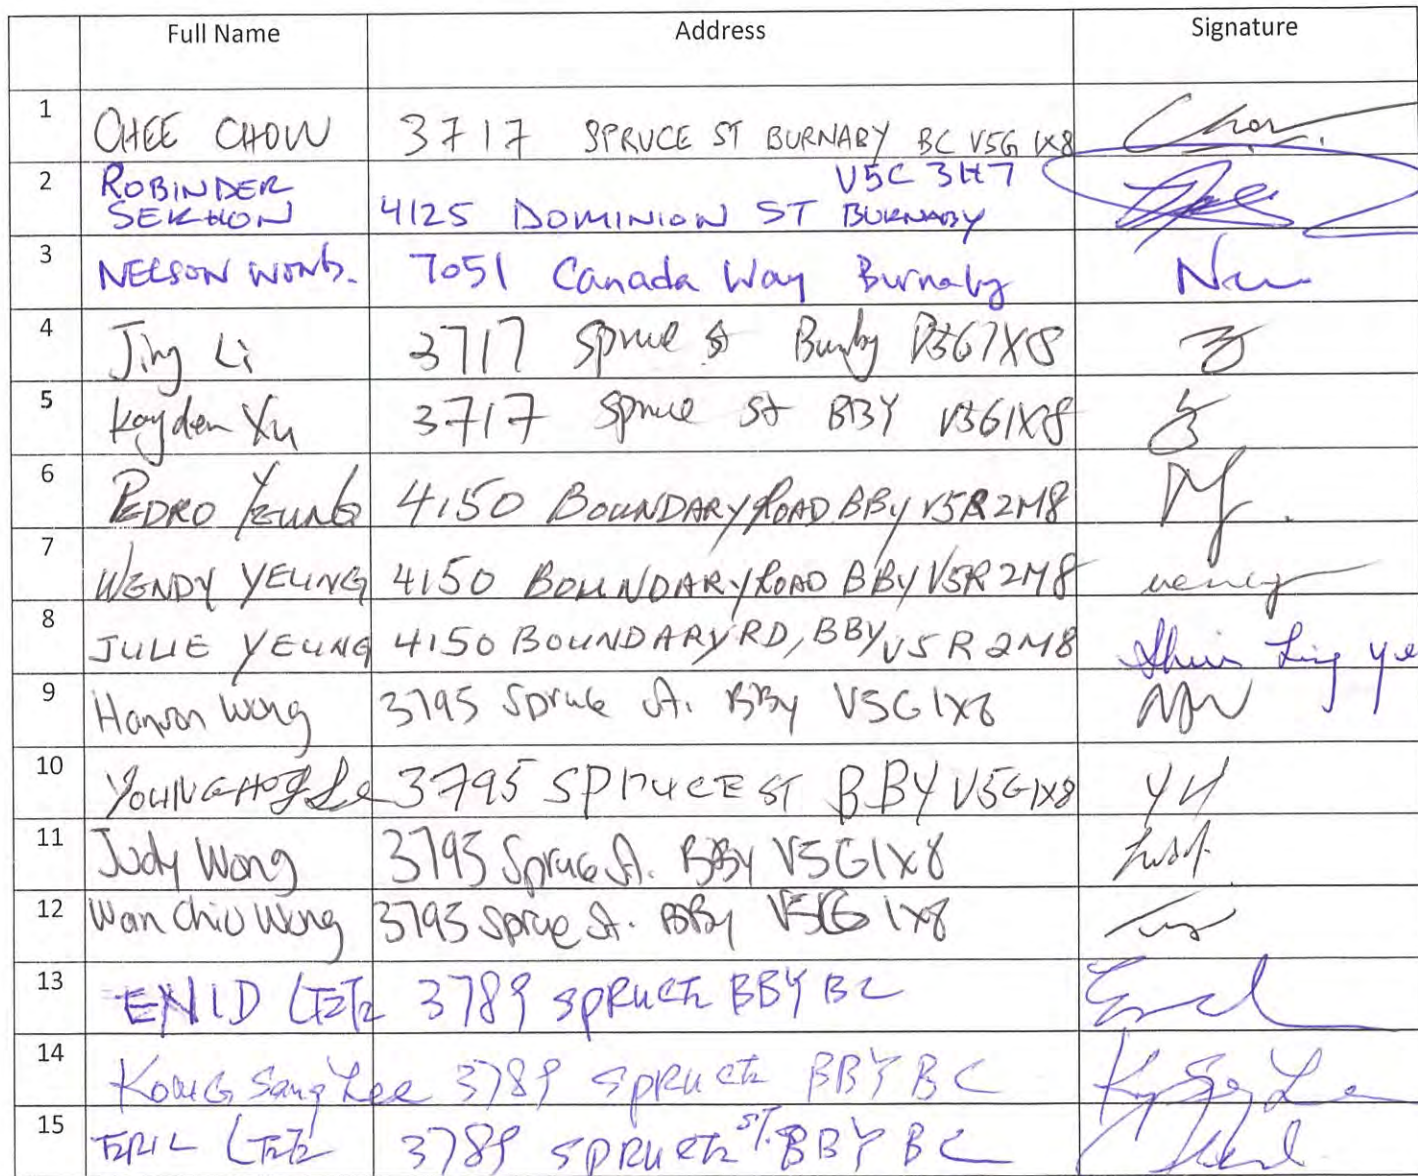 Full Name Address Signature
1 CHEE CHOW 3717 SPRUCE ST BURNABY BC V5G 1X8 Chow
2 ROBINDER SEKHON 4125 DOMINION ST BURNABY V5C 3H7
3 NELSON WONG. 7051 Canada Way Burnaby
4 Jing Li 3717 Spruce St
5 Kayden Xu 3717 Spruce St BBY V5G1X8
6 PEDRO YEUNG 4150 BOUNDARY ROAD BBY V5R 2M8
7 WENDY YEUNG 4150 BOUNDARY ROAD BBY V5R 2M8
8 JULIE YEUNG 4150 BOUNDARY RD, BBY V5R 2M8
9 Hanson Wong 3795 Spruce St. BBy V5G 1X8
10 3795 SPRUCE ST BBY V5G1X8 YH
11 Judy Wong 3795 Spruce St. BBy V5G1X8
12 Wan Chiu Wong 3795 Spruce St. BBy V5G 1X8
13 ENID LEE 3789 SPRUCE BBY BC
14 KONG Sang Lee 3789 SPRUCE BBY BC
15 ERIC LEE 3789 SPRUCE ST. BBY BC